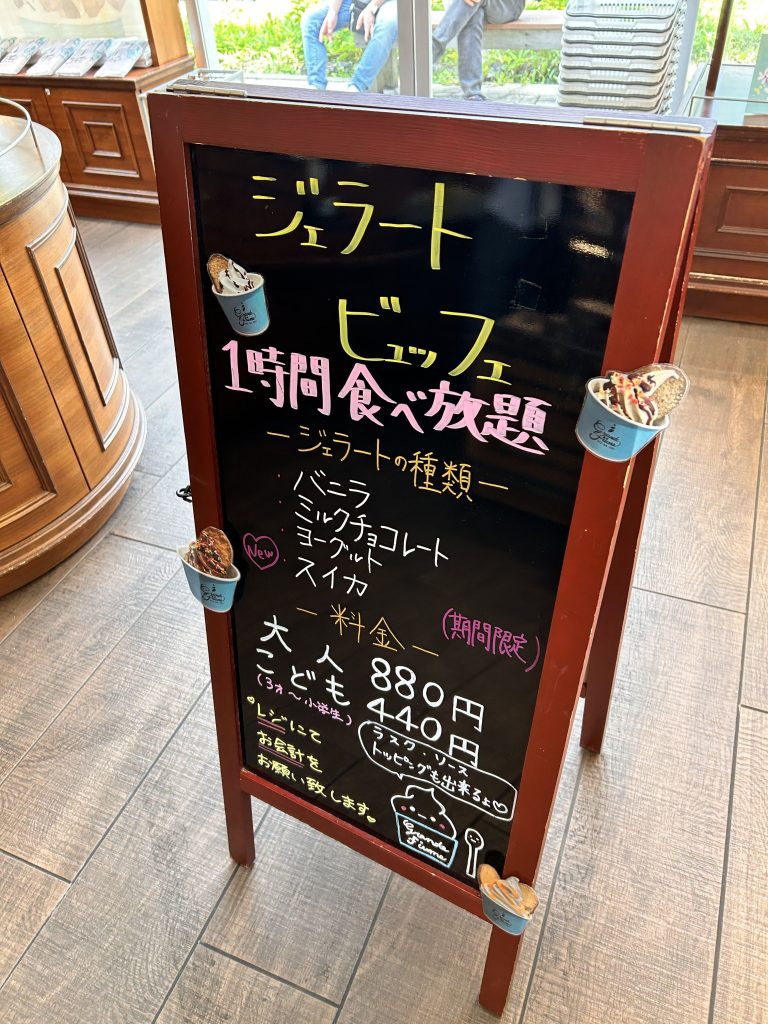 ジェラート
ビュッフェ
1時間食べ放題
ージェラートの種類ー
バニラ
ミルクチョコレート
New ヨーグルト
スイカ
(期間限定)
ー料金ー
大人 880円
こども 440円
(3才〜小学生)
♡レジにて
お会計を
お願い致します♡
ラスク・ソース
トッピングも出来るよ♡
Grande
Fiume